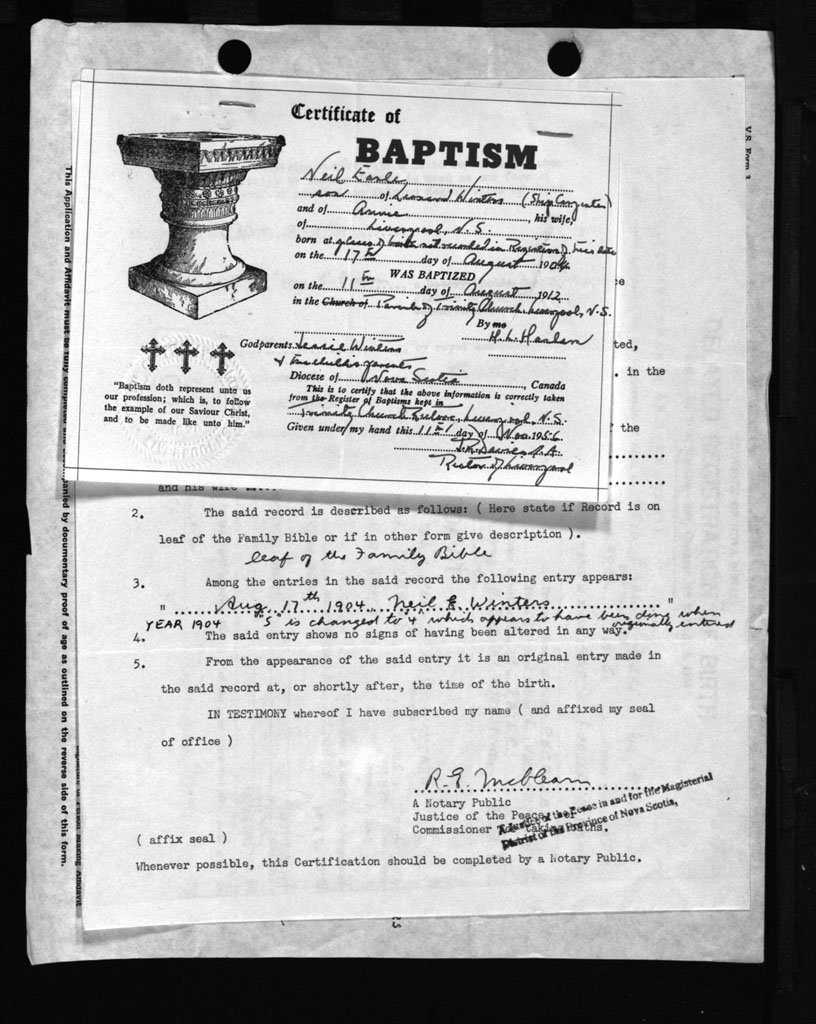 Certificate of
BAPTISM
Neil Earle
son of Leonard Winters (Ship Carpenter)
and of Annie, his wife,
of Liverpool, N.S.
born at place of birth not recorded in Registers of this date
on the 17th day of August 1904
WAS BAPTIZED
on the 11th day of August 1912
in the Church of Parish of Trinity Church, Liverpool, N.S.
By me H. L. Haslam
Godparents Jessie Winters
& the child's parents
Diocese of Nova Scotia, Canada
This is to certify that the above information is correctly taken
from the Register of Baptisms kept in
Trinity Church, Liverpool, N.S.
Given under my hand this 11th day of Nov. 1956
Rector of Liverpool
"Baptism doth represent unto us
our profession; which is, to follow
the example of our Saviour Christ,
and to be made like unto him."
V.S. Form 3
ted,
. in the
the
and his wife
2. The said record is described as follows: ( Here state if Record is on
leaf of the Family Bible or if in other form give description ).
leaf of the Family Bible
3. Among the entries in the said record the following entry appears:
" Aug. 17th 1904 Neil E. Winters "
YEAR 1904 "5" is changed to 4 which appears to have been done when
originally entered
4. The said entry shows no signs of having been altered in any way.
5. From the appearance of the said entry it is an original entry made in
the said record at, or shortly after, the time of the birth.
IN TESTIMONY whereof I have subscribed my name ( and affixed my seal
of office )
R. E.
A Notary Public
Justice of the Peace
Commissioner for taking Oaths.
A Justice of the Peace in and for the Magisterial
District of the Province of Nova Scotia,
( affix seal )
Whenever possible, this Certification should be completed by a Notary Public.
This Application and Affidavit must be fully completed and accompanied by documentary proof of age as outlined on the reverse side of this form.